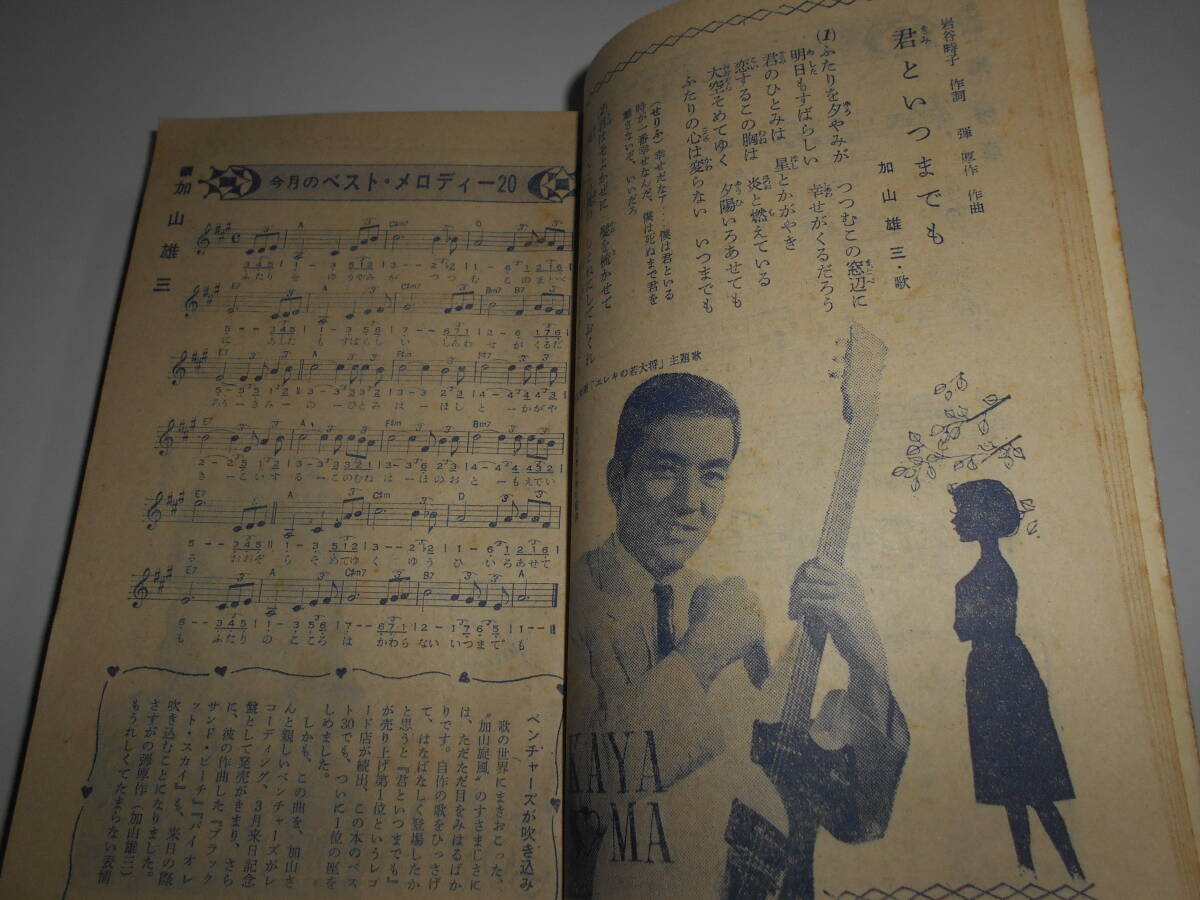 君といつまでも
岩谷時子 作詞 弾 厚作 作曲
加山雄三・歌
(1)ふたりを夕やみが つつむこの窓辺に
明日もすばらしい 幸せがくるだろう
君のひとみは 星とかがやき
恋するこの胸は 炎と燃えている
大空そめてゆく 夕陽いろあせても
ふたりの心は変らない いつまでも
(せりふ)幸せだなァ…僕は君といる
時が一番幸せなんだ、僕は死ぬまで君を
離さないぞ、いいだろ
「エレキの若大将」主題歌
KAYA
MA
加山雄三
今月のベスト・メロディー20
ふたりをゆうやみが つつむ このまどべ
に あしたも すばらしい しあわせが くるだ
ろう きみの ひとみは ほしと かがや
き こいする このむねは ほのおと もえてい
る おおぞら そめてゆく ゆうひ いろあせて
も ふたりの こころは かわらない いつまでも
ベンチャーズが吹き込み
歌の世界にまきおこった、
“加山旋風”のすさまじさに
は、ただただ目をみはるばか
りです。自作の歌をひっさげ
て、はなばなしく登場したか
と思うと『君といつまでも』
が売り上げ第1位というレコ
ード店が続出、この本のベス
ト30でも、ついに1位の座を
しめました。
しかも、この曲を、加山さ
んと親しいベンチャーズがレ
コーディング、3月来日記念
盤として発売がきまり、さら
に、彼の作曲した『ブラック
サンド・ビーチ』『バイオレ
ット・スカイ』も、来日の際
吹き込むことになりました。
さすがの弾厚作(加山雄三)
もうれしくてたまらない表情